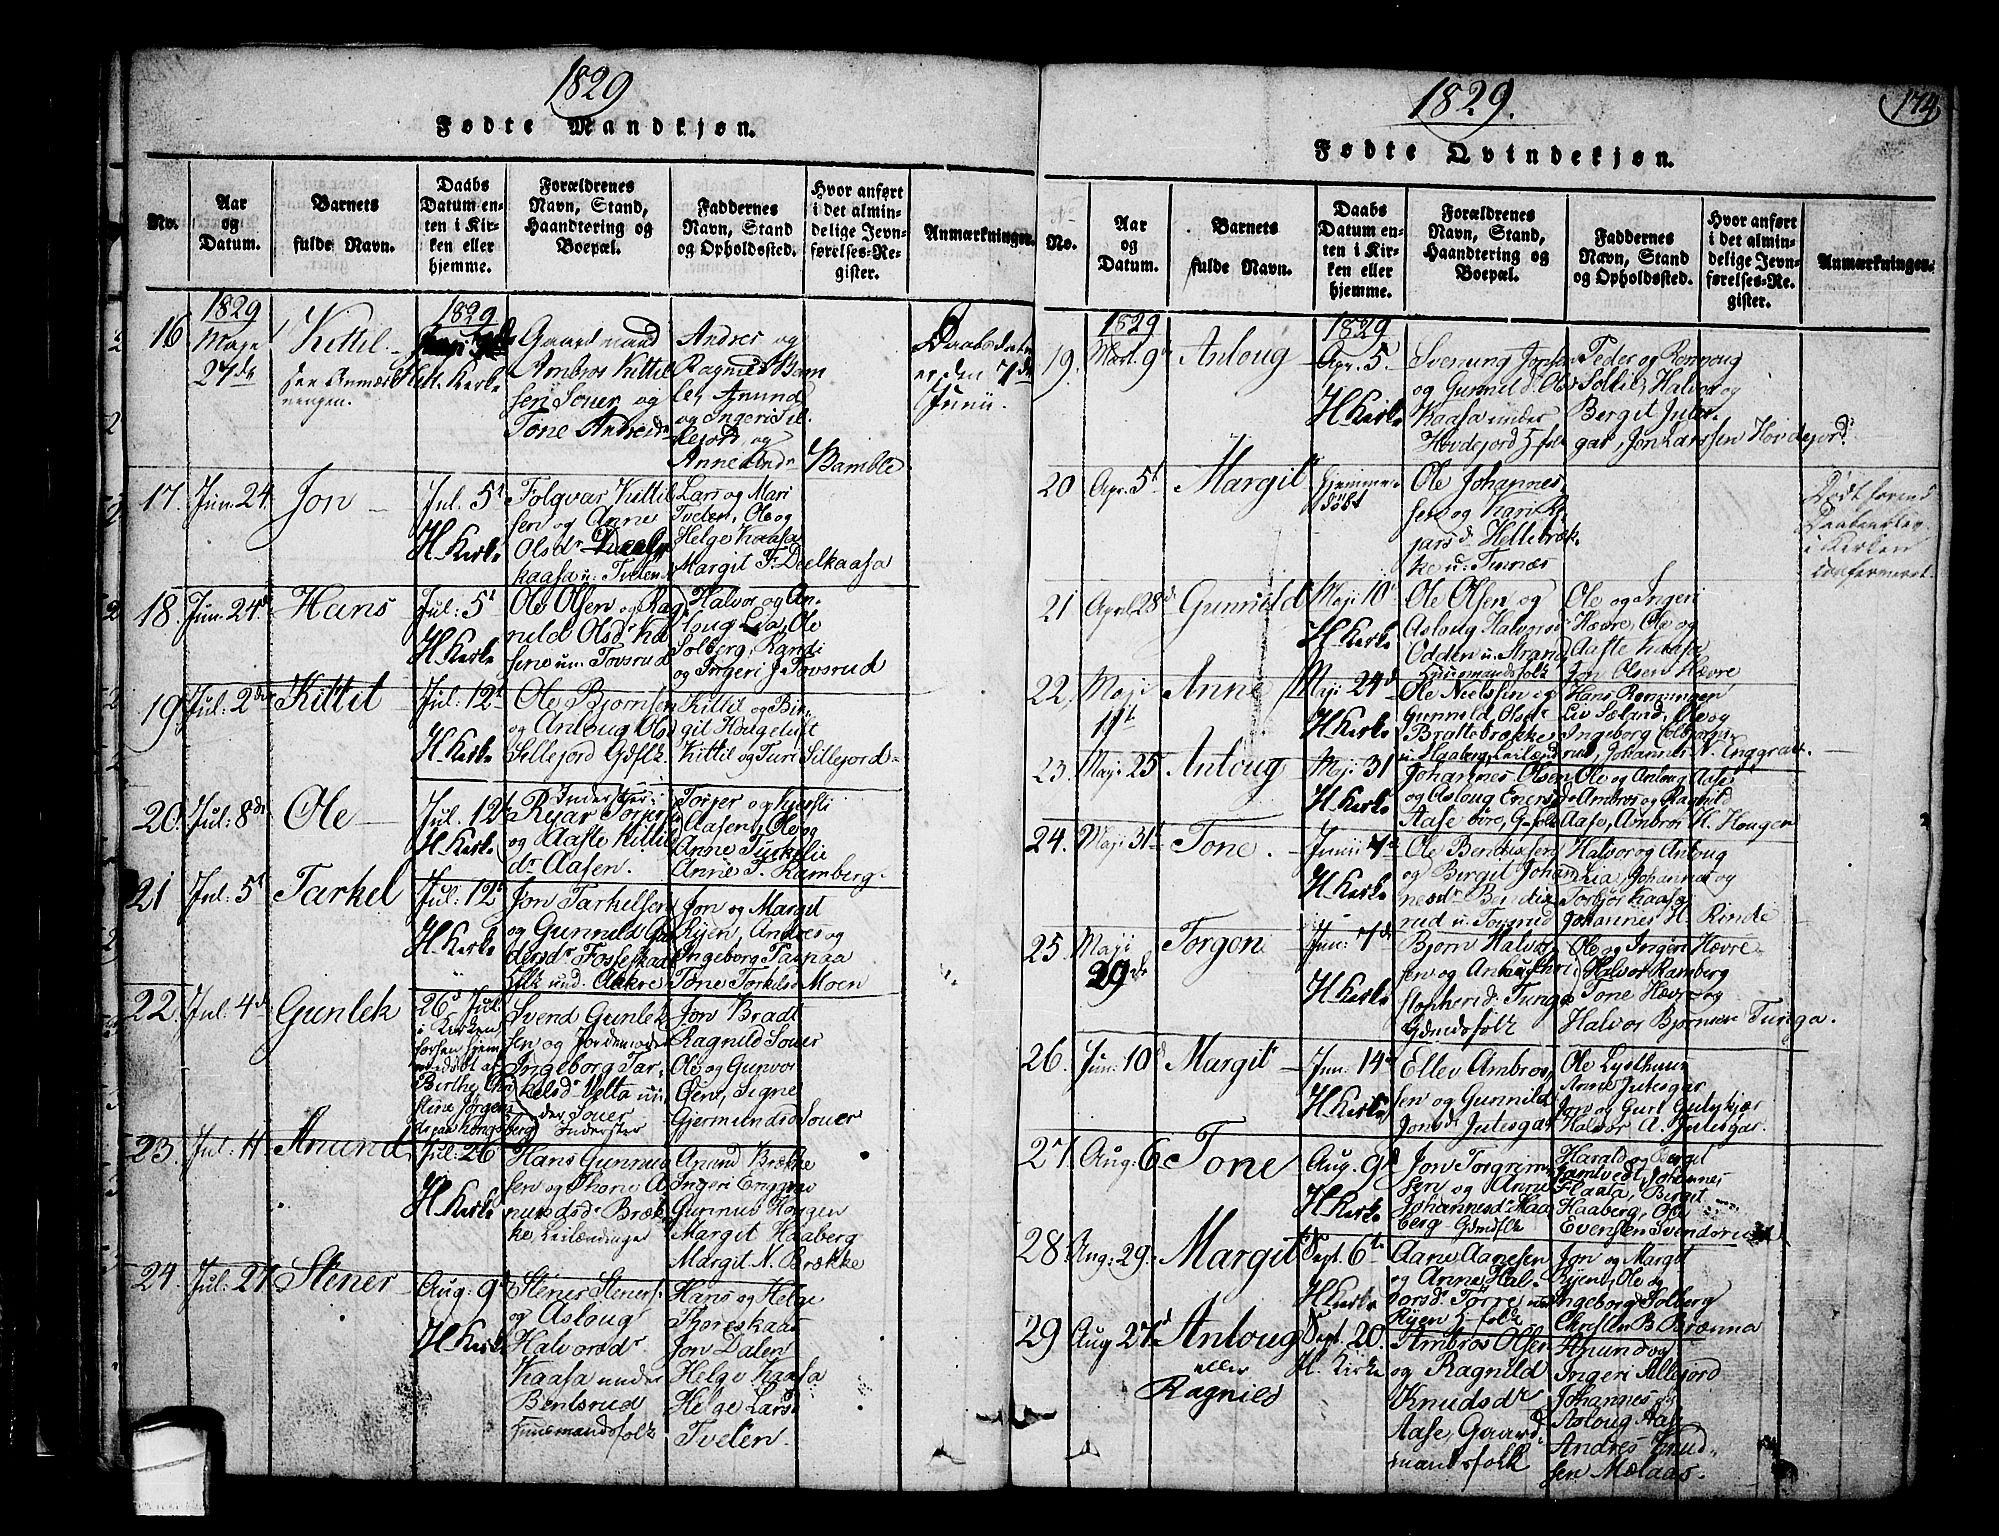 1829
Fødte Mandkjøn.
No.
Aar
og
Datum.
Barnets
fulde Navn.
Daabs
Datum en-
ten i Kir-
ken eller
hjemme.
Forældrenes
Navn, Stand,
Haandtering og
Boepæl.
Faddernes
Navn, Stand
og Opholdssted.
Hvor anført
i det almin-
delige Jevn-
førelses-Re-
gister.
Anmærkninger.
16
1829
Maje
27de
Kittil
see Anmærk
ningen.
1829
H. Kirke
Gaardmand
Ambros Kittil
sen Souer og
Tone Andreidr
Andres og
Ragnild Bam
le, Anund
og Ingeri Sil
lejord, og
Anne Andr Bamble
Daabsdatum
er den 7de
Junii
17.
Jun. 24
Jon
Jul. 5t
H Kirke
Folqvar Kittil
sen og Anne
Olsdr
kaasa u. Tveten
Lars og Mari
Tveten, Ole og
Helge Kaasa
Margit F. Deelkaasa
18
Jun. 24d
Hans
Jul: 5t
H Kirke
Ole Olsen og Rag
nild Olsdr Kaa
sene un: Tovsrud
Halvor og An-
loug Lia, Ole
Solberg, Randi
og Ingeri J. Tovsrud
19
Jul: 2den
Kittil
Jul: 12t
H Kirke
Ole Bjørnsen
og Anloug Ols
Sillejord Gdflk
Kittil og Bir-
git Hougeluft
Kittil og Turi Sillejord
20.
Jul: 8de
Ole
Jul: 12t
H Kirke
Inderster:
Rejar Torjer
og Aaste Kittil
dr Aasen.
Torjer og Kjersti
Aasen, Ole og
Anne Turkelie
Anne T. Ramberg.
21
Jul: 5t
Tarkel
Jul: 12t
H Kirke
Jon Tarkelsen
og Gunnild Gun
dersdr Fossekaas
Hflk und. Aakre
Jon og Margit
Ryen, Andres og
Ingeborg Tasnaa
Tone Torkilsd Moen
22
Jul: 4de
Gunlek
26d Jul:
i Kirken
forhen hjem
medøbt af
Birthe Chri
stine Jørgens
dr paa Kongsberg
Svend Gunlek
sen og Jordemoder
Ingeborg Tar-
kelsdr Velta un
der Souer
Inderster
Jon Bradt
Ragnild Souer
Ole og Gunvor
Øen, Signe
Gjermundsd Souer
23
Jul: 11
Anund
Jul: 26
H Kirke
Hans Gunnus
sen og Thone A
nundsdr Bræk
ke, Leilændinger
Anund Brække
Ingeri Enggrav
Gunnus Hougen
Margit Haaberg
Margit N. Brække
24.
Jul: 27
Stener
Aug: 9d
H Kirke
Stener Steners
og Asloug
Halvorsdr
Kaasa under
Bentsrud
Huusmandsfolk
Hans og Helge
Tjoreskaas
Jon Dalen
Helge Kaasa
Helge Larsd
Tveten.
1829.
174
Fødte Qvindekjøn.
No.
Aar
og
Datum.
Barnets
fulde Navn.
Daabs
Datum en-
ten i Kir-
ken eller
hjemme.
Forældrenes
Navn, Stand,
Haandtering og
Boepæl.
Faddernes
Navn, Stand
og Opholdssted.
Hvor anført
i det almin-
delige Jevn-
førelses-Re-
gister.
Anmærkninger.
19.
1829
Mart. 9de
Anloug
1829
Apr. 5t
H Kirke
Svenung Jonsen
og Gunnild Ols
Kaasa under
Hovdejord Hfolk
Peder og Rønnoug
Sollie, Halvor og
Bergit Jutes-
gar, Jon Larssen Hovdejord
20
Apr. 5t
Margit
Hjemme
døbt
Ole Johannes
sen og Kari Re
jarsd. Hellebræk
ke u. Tinnæs
Død forend
Daaben blev
i Kirken
confirmeret.
21
April 28d
Gunnild
Maji 10t
H Kirke
Ole Olsen og
Asloug Halvorsd
Odden u. Strand
Huusmandsfolk
Ole og Ingeri
Hævre, Ole og
Aaste Kaasa
Jon Olsen Hævre
22.
Maji
11t
Anne
Maji 24d
H Kirke
Ole Nielssen og
Gunnild, Olsdr
Brattebrække
u. Haaberg, Leilænd
Hans Rønningen
Liv Sæland, Ole og
Ingeborg
rud, Johannes N. Enggrav
23.
Maji 25
Anloug
Maji 31
H Kirke
Johannes Olsen
og Asloug Enersd
Aase øvre, G-folk
Ole og Anloug Aase
Ambros og Ragnild
Aase, Ambros K. Hougen
24.
Maji 31t
Tone.
Junii 7de
H Kirke
Ole Bendixsen
og Birgit Johan
nesdr Bendix
rud u. Tovsrud
Halvor og Anloug
Lia, Johannes og
Torbjør Kaasa
Johannes H. Rinde
25
Maji
29de
Torgon
Jun: 7de
H Kirke
Bjørn Halvor
sen og Anne Chri
stophersd. Tunga
Gdmdsfolk
Ole og Ingeri Hævre
Halvor Ramberg
Tone Hævre og
Halvor Bjørnsen Tunga.
26.
Jun: 10d
Margit
Jun: 14de
H Kirke
Ellev Ambros
sen og Gunnild
Jonsdr Jutesgar
Ole Lysthuus
Anne Jutesgar
Jon og Guri Gulykjær
Halvor A. Jutesgar.
27.
Aug: 6
Tone
Aug. 9d
H Kirke
Jon Torgrims
sen og Anne
Johannesdr Haa
berg Gdmdsfolk
Harald og Bergit
Johannes
Flaata, Birgit
Haaberg, Ole
Evensen Svendsrud
28
Aug: 29.
Margit
Sept. 6te
H Kirke
Aane Aanesen
og Anne Hal-
vorsdr Torre un
Ryen Hfolk
Jon og Margit
Ryen, Ole og
Ingeborg Solberg
Christen B. Brenna
29
Aug 27d
Anloug
eller
Ragnild
Sept. 20.
H. Kirke
Ambros Olsen
og Ragnild
Knudsdr
Aase, Gaard-
mandsfolk
Anund og
Ingeri Sillejord
Johannes og
Asloug Aase
Andres Knud-
sen Mælaas.